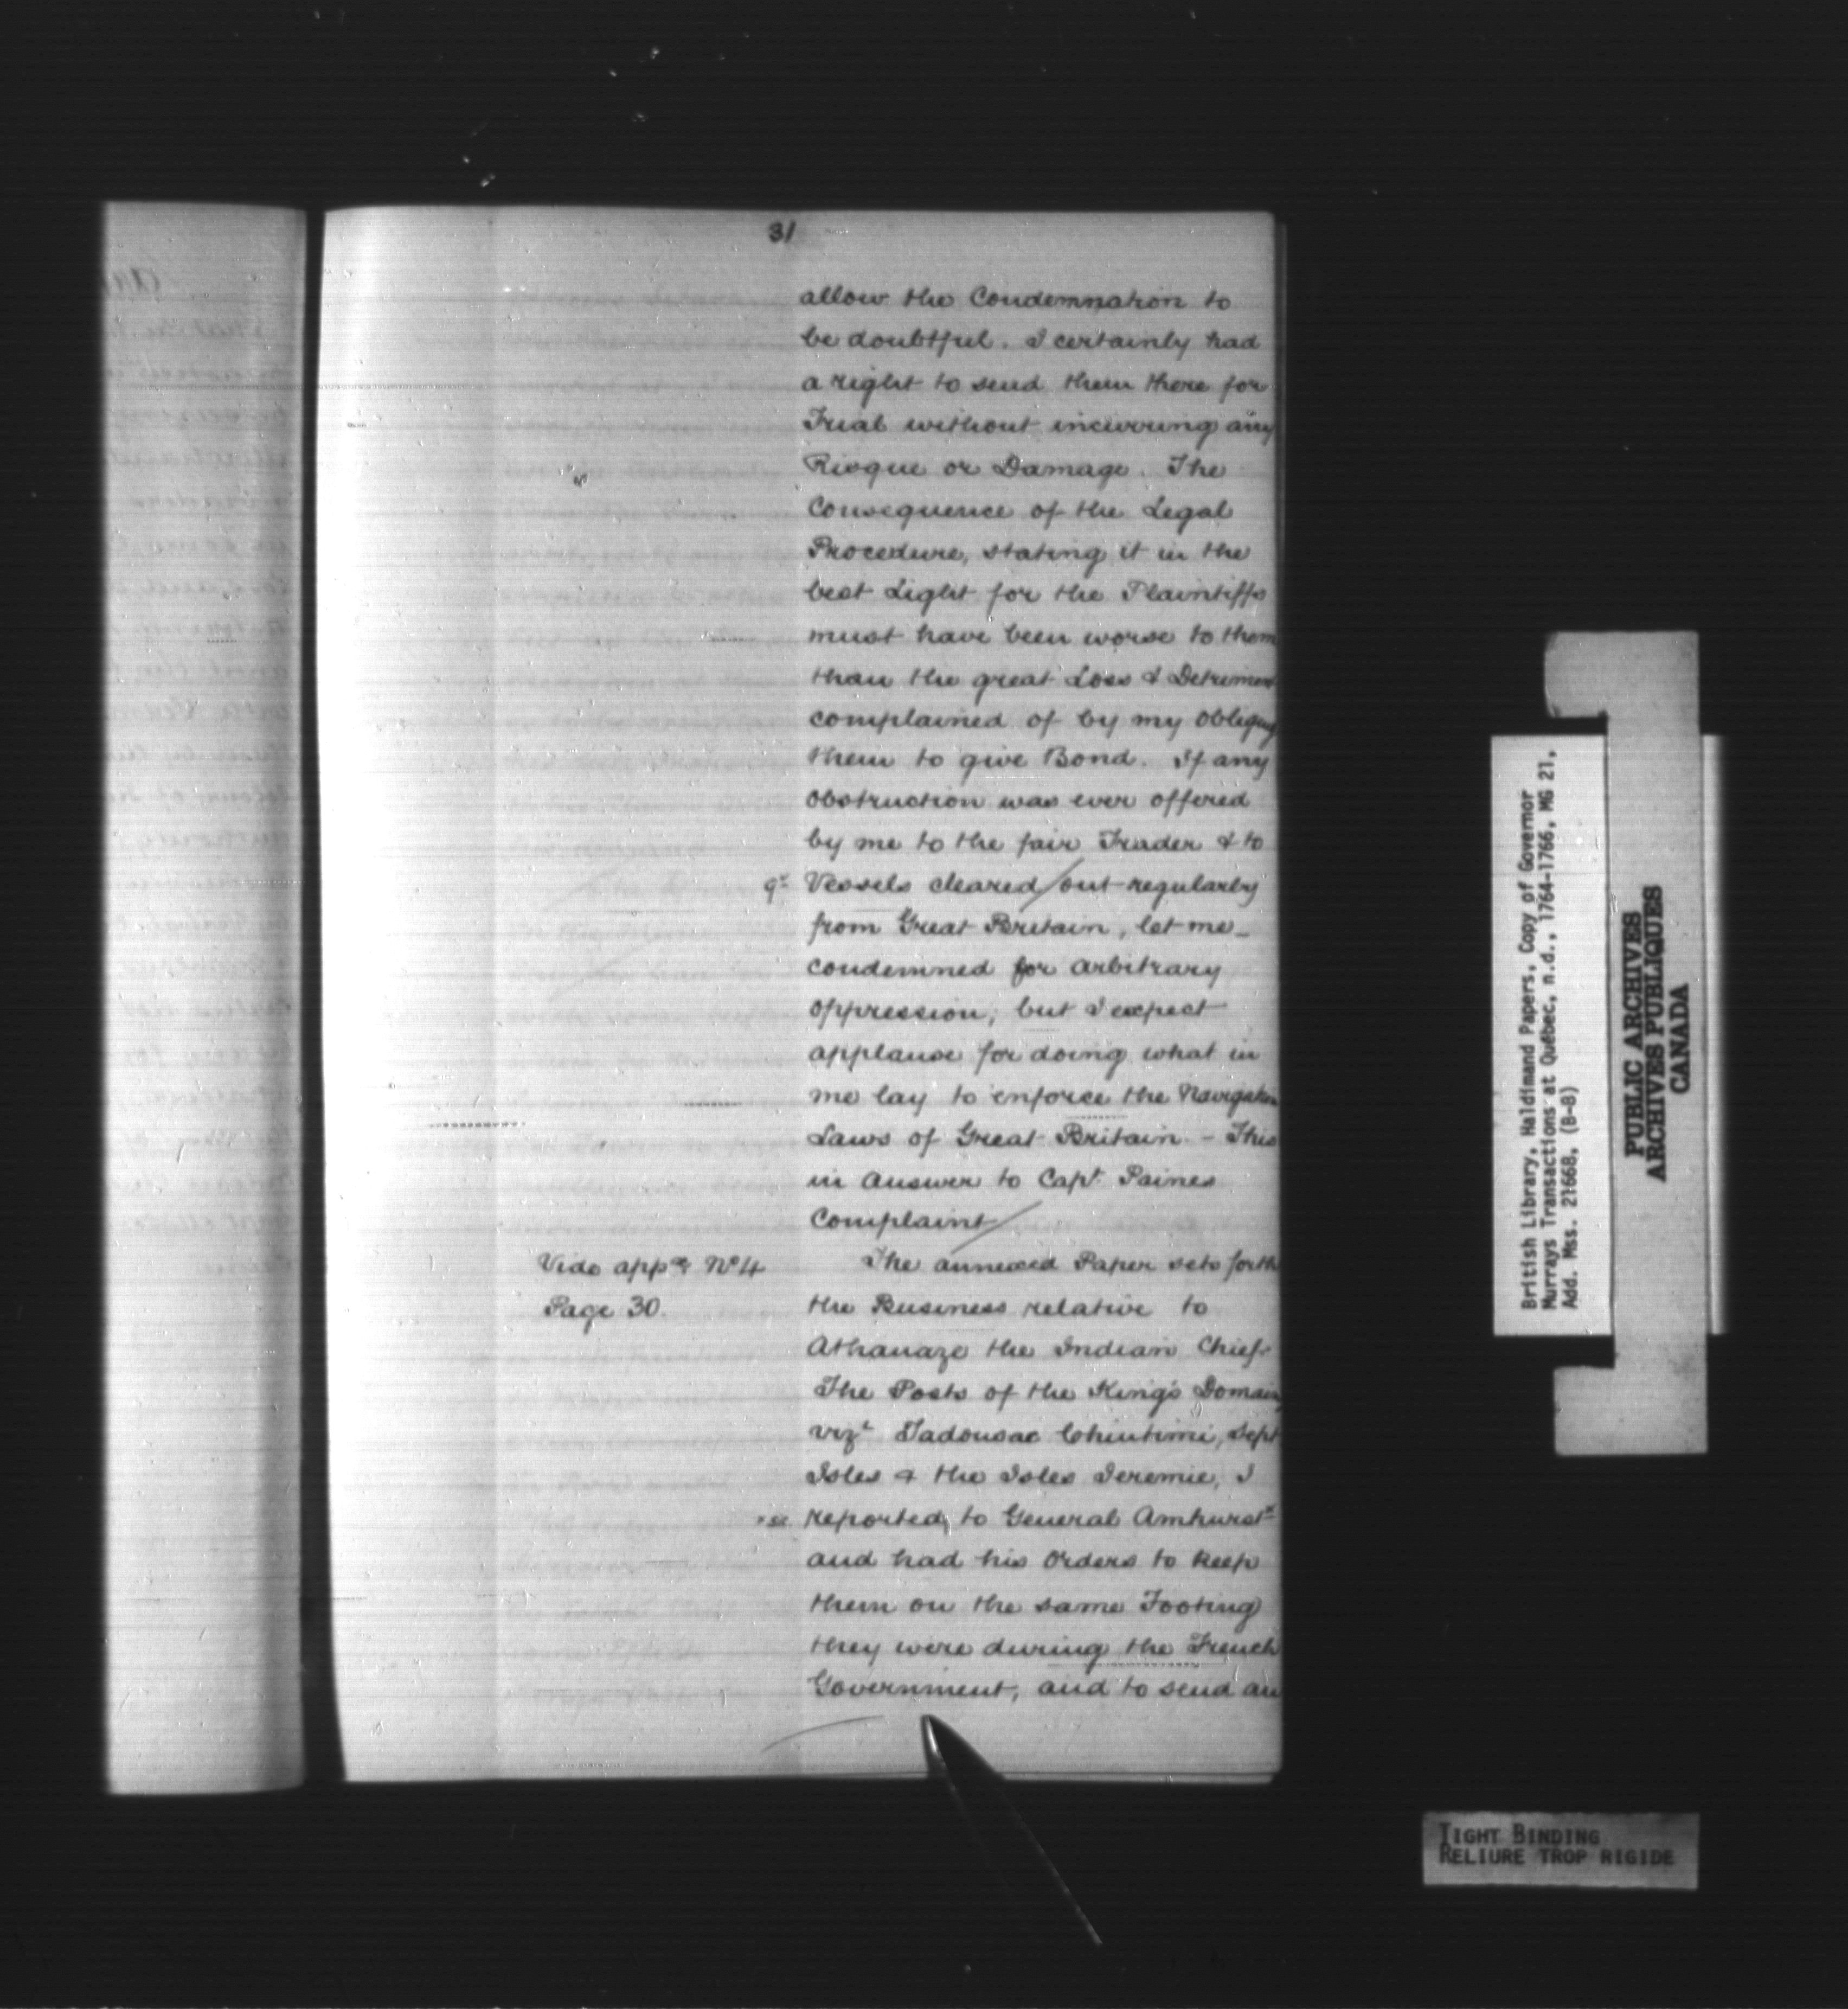 31
allow the Condemnation to
be doubtful. I certainly had
a right to send them there for
Trial without incurring any
Risque or Damage. The
Consequence of the Legal
Procedure, stating it in the
best Light for the Plaintiffs
must have been worse to them
than the great Loss & Detriment
complained of by my obliging
them to give Bond. If any
obstruction was ever offered
by me to the fair Trader & to
Vessels cleared out regularly
from Great Britain, let me
condemned for arbitrary
oppression; but I expect
applause for doing what in
me lay to enforce the Navigation
Laws of Great Britain. - This
in answer to Capt. Paines
Complaint
Vide appx. No 4
Page 30.
The annexed Paper sets forth
the Business relative to
Athanaze the Indian Chief.
The Posts of the King's Domain,
vizt Tadousac Chicutimi, Sept
Isles & the Isles Jeremie, I
reported, to General Amhurst x
and had his Orders to keep
them on the same Footing
they were during the French
Government, and to send an
British Library, Haldimand Papers, Copy of Governor
Murrays Transactions at Québec, n.d., 1764-1766, MG 21,
Add. Mss. 21668, (B-8)
PUBLIC ARCHIVES
ARCHIVES PUBLIQUES
CANADA
TIGHT BINDING
RELIURE TROP RIGIDE